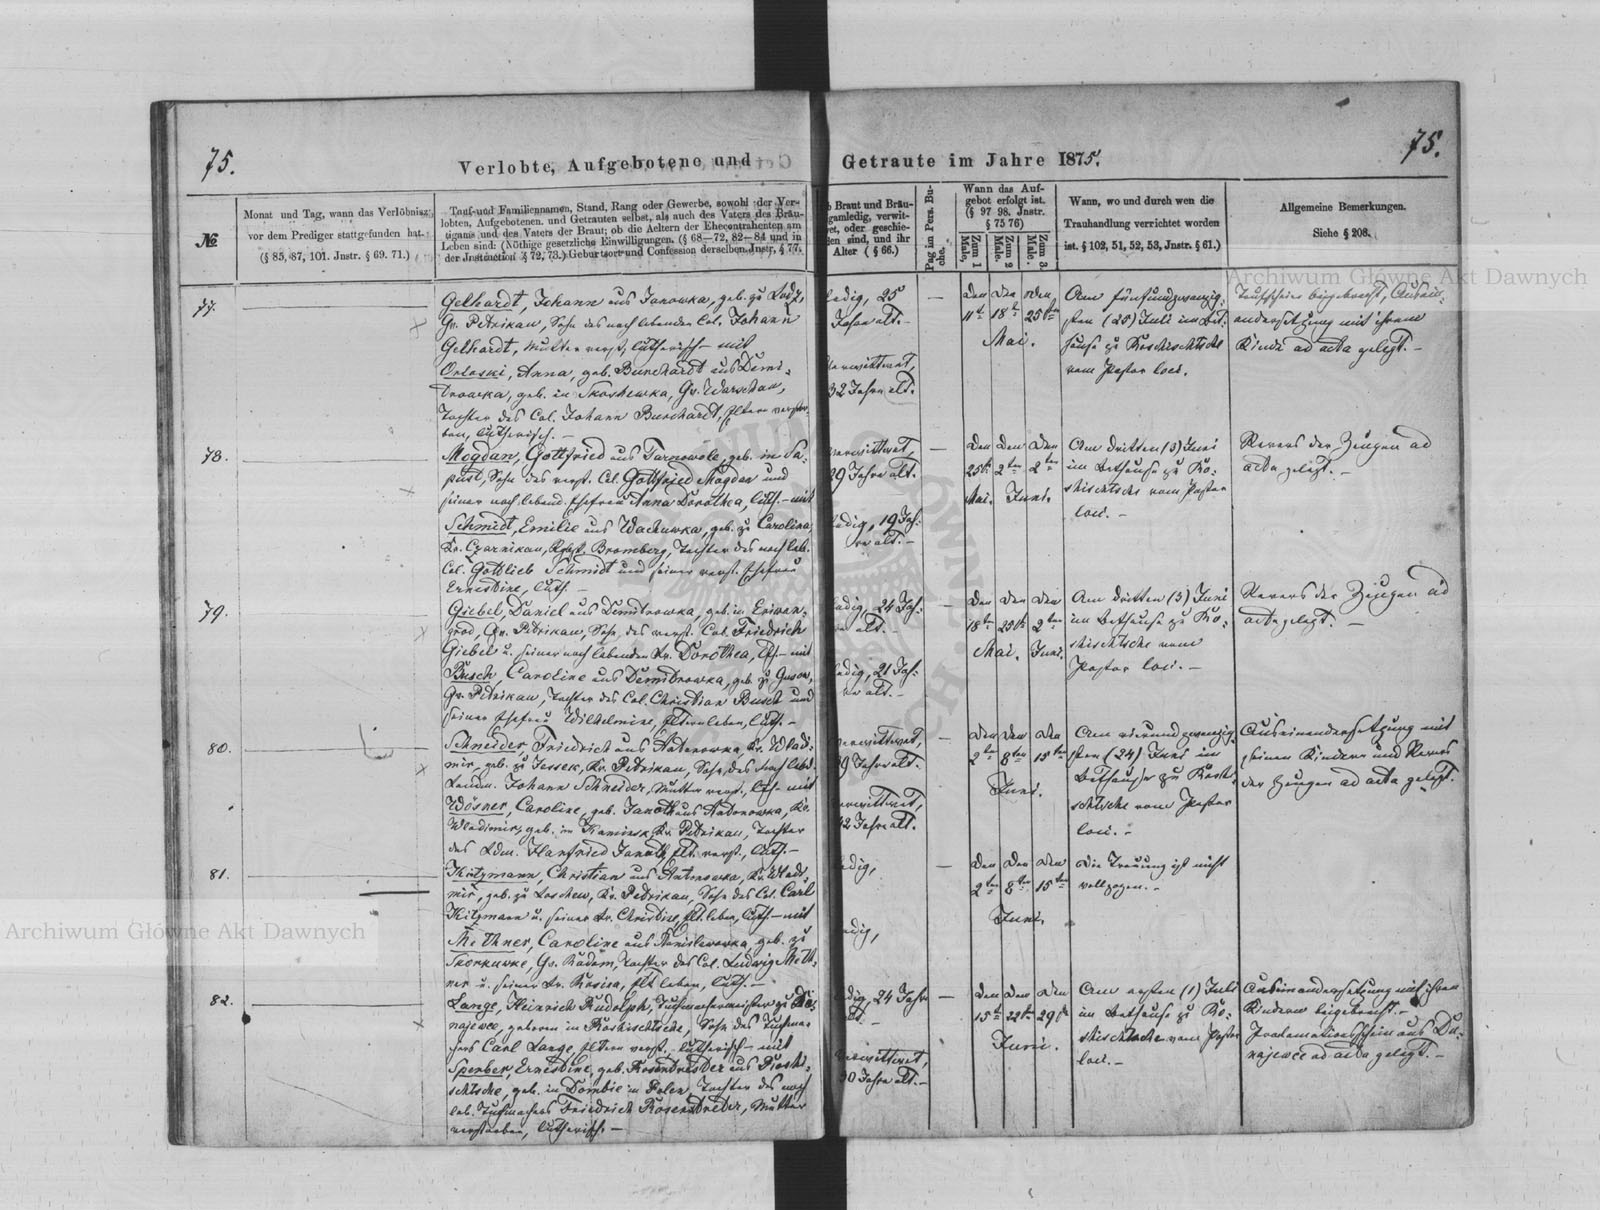 75.
Verlobte, Aufgebotene und
Getraute im Jahre 1875.
75.
№
Monat und Tag, wann das Verlöbnisz
vor dem Prediger stattgefunden hat.
(§ 85, 87, 101. Jnstr. § 69. 71.)
Tauf-und Familiennamen, Stand, Rang oder Gewerbe, sowohl der Ver-
lobten, Aufgebotenen. und Getrauten selbst, als auch des Vaters des Bräu-
tigams und des Vaters der Braut; ob die Aeltern der Ehecontrahenten am
Leben sind: (Nöthige gesetzliche Einwilligungen. (§ 68—72, 82—84 und in
der Instruction § 72, 73.) Geburtsort und Confession derselben. Jnstr. § 77.
b Braut und Bräu-
gamledig, verwit-
wet, oder geschie-
den sind, und ihr
Alter ( § 66.)
Pag im Pers. Bu-
che.
Wann das Auf-
gebot erfolgt ist.
(§ 97 98. Jnstr.
§ 75 76)
Zum 1 Male.
Zum 2 Male.
Zum 3 Male.
Wann, wo und durch wen die
Trauhandlung verrichtet worden
ist. § 102, 51, 52, 53, Jnstr. § 61.)
Allgemeine Bemerkungen.
Siehe § 208.
77.
Gelhardt, Johann aus Janowka, geb. zu Lodz,
Gv. Petrikau, Sohn des noch lebenden Col. Johann
Gelhardt, Mutter verst., lutherisch – mit
Orloski, Anna, geb. Burchardt aus Demi-
drowka, geb. in Skoshewka, Gv. Warschau,
Tochter des Col. Johann Burchardt, Eltern verstor-
ben, lutherisch. –
ledig, 25
Jahre alt. –
verwittwet,
32 Jahre alt. –
den den den
11te 18te 25ten
Mai.
Am fünfundzwanzig-
sten (25) Juli im Bet-
hause zu Roschischtsche
vom Pastor loci.
Taufschein beigebracht, Ausein-
andersetzung mit ihrem
Kinde ad acta gelegt. –
78.
Mogdan, Gottfried aus Tarnowole, geb. in
Sohn des verst. Col. Gottfried Mogdan und
seiner noch lebend. Ehefrau Anna Dorothea, luth. – mit
Schmidt, Emilie aus Wackuwka, geb. zu Carolina
Kr. Czarnikau, Rgbzt. Bromberg, Tochter des noch leb.
Col. Gottlieb Schmidt und seiner verst. Ehefrau
Ernestine, luth. –
verwittwet,
29 Jahre alt. –
ledig, 19 Jah-
re alt. –
den den den
25te 2ten 2ten
Mai. Juni.
Am dritten (3) Juni
im Bethause zu Ro-
schischtsche vom Pastor
loci. –
Revers der Zeugen ad
acta gelegt. –
79.
Giebel, Daniel aus Demidrowka, geb. in
Gv. Petrikau, Sohn des verst. Col. Friedrich
Giebel u. seiner noch lebenden Fr. Dorothea, luth. – mit
Busch, Caroline aus Demidrowka, geb. zu
Gv. Petrikau, Tochter des Col. Christian Busch und
seiner Ehefrau Wilhelmine, Eltern leben, luth. –
ledig, 24 Jah-
re alt. –
ledig, 21 Jah-
re alt. –
den den den
18te 25te 2ten
Mai. Juni.
Am dritten (3) Juni
im Bethause zu Ro-
schischtsche vom
Pastor loci. –
Revers der Zeugen ad
acta gelegt. –
80.
Schneider, Friedrich aus Antonowka Kr. Wladi-
mir, geb. zu Jessek, Kr. Petrikau, Sohn des noch lebd.
Landm. Johann Schneider, Mutter verst., luth. mit
Wösner, Caroline, geb. Janoth aus Antonowka, Kr.
Wladimir, geb. im Kaminsk, Kr. Petrikau, Tochter
des Ldm. Janoth, Elt. verst., luth. –
verwittwet,
39 Jahre alt. –
verwittwet,
42 Jahre alt.
den den den
2te 8ten 15ten
Juni.
Am vierundzwanzig-
sten (24) Juni im
Bethause zu Rosch-
schtsche vom Pastor
loci. –
Auseinandersetzung mit
seinen Kindern und Revers
der Zeugen ad acta gelegt.
81.
Kitzmann, Christian aus Antonowka, Kr. Wladi-
mir, geb. zu Loschew, Kr. Petrikau, Sohn des Col. Carl
Kitzmann u. seiner Fr. Christine, Elt. leben, luth. – mit
Methner, Caroline aus Stanislawowka, geb. zu
Gv. Radom, Tochter des Col. Ludwig Meth-
ner u. seiner Fr. Rosina, Elt. leben, luth. –
ledig,
ledig,
den den den
2ten 8ten 15ten
Juni.
die Trauung ist nicht
vollzogen. –
82.
Lange, Heinrich Rudolph, Tuchmachermeister zu Du-
najewce, geboren in Roschischtsche, Sohn des Tuchma-
chers Carl Lange, Eltern verst. lutherisch – mit
Sperber, Ernestine, geb. Rosendreter aus Roschi-
schtsche, geb. in Dombie in Polen, Tochter des noch
leb. Tuchmachers Friedrich Rosendreter, Mutter
verstorben, lutherisch. –
ledig, 24 Jahre
alt. –
verwittwet,
30 Jahre alt. –
den den den
15te 22te 29te
Juni.
Am ersten (1) Juli
im Bethause zu Ro-
schischtsche vom Pastor
loci. –
Auseinandersetzung mit ihren
Kindern beigebracht. –
Proclamationsschein aus Du-
najewce ad acta gelegt. –
Archiwum Główne Akt Dawnych
Archiwum Główne Akt Dawnych